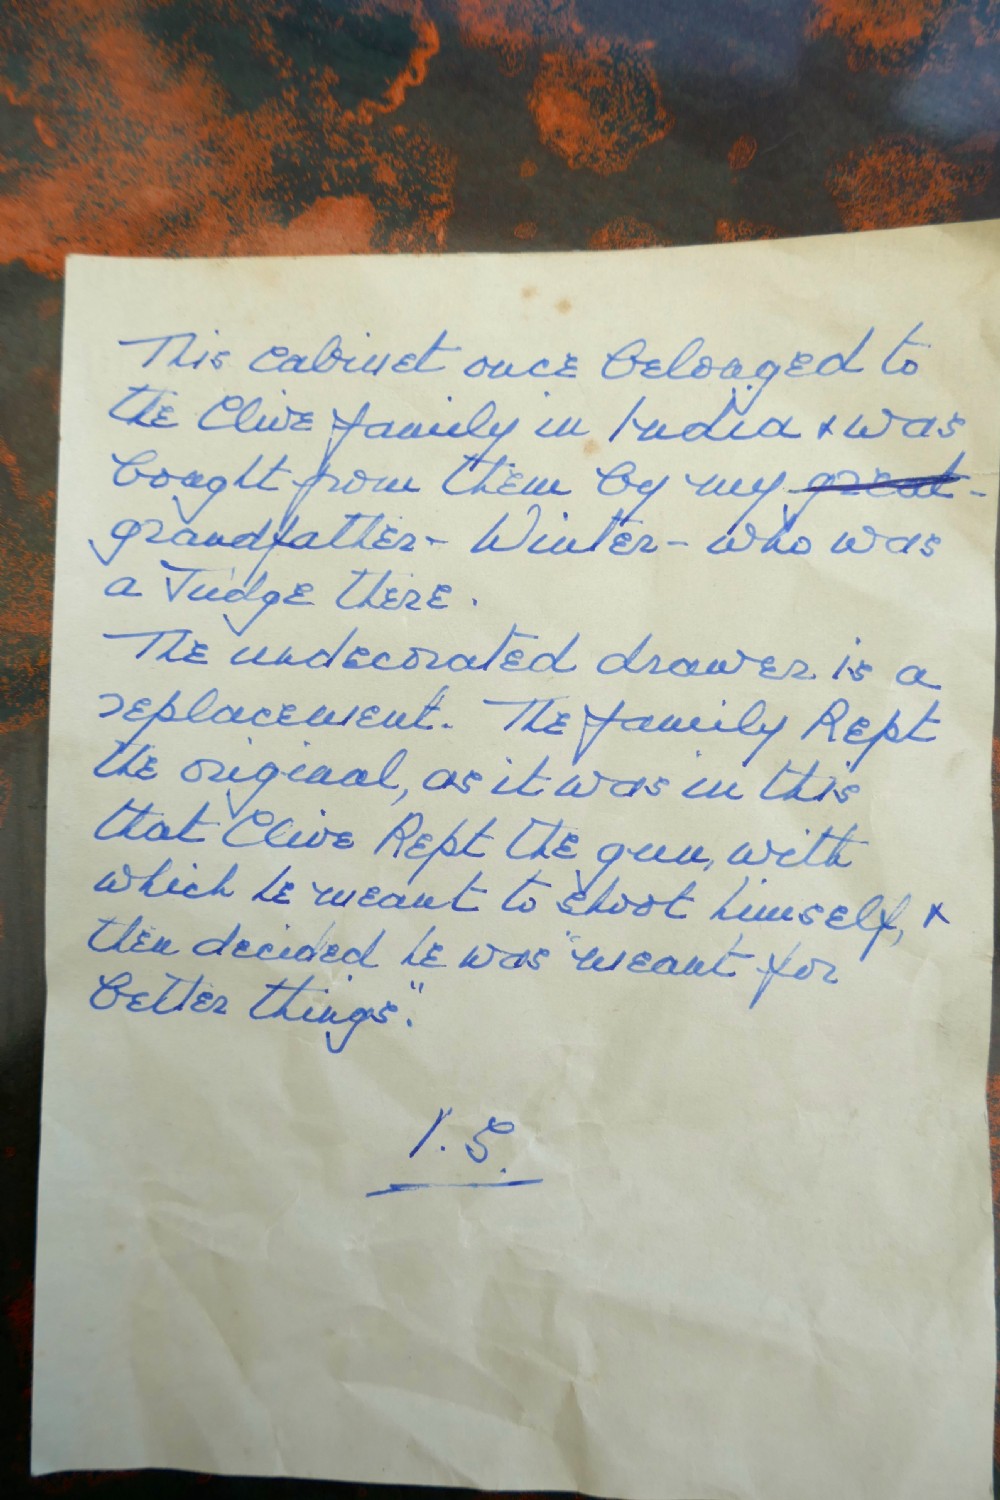 This cabinet once belonged to
the Clive family in India & was
bought from them by my great-
grandfather - Winter - who was
a Judge there.
The undecorated drawer is a
replacement. The family kept
the original, as it was in this
that Clive kept the gun, with
which he meant to shoot himself, &
then decided he was "meant for
better things".
I.S.